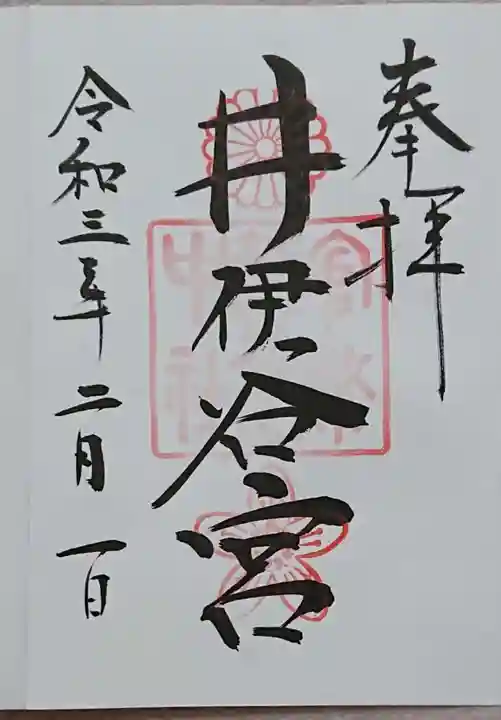 奉拝
井伊谷宮
令和三年二月一日